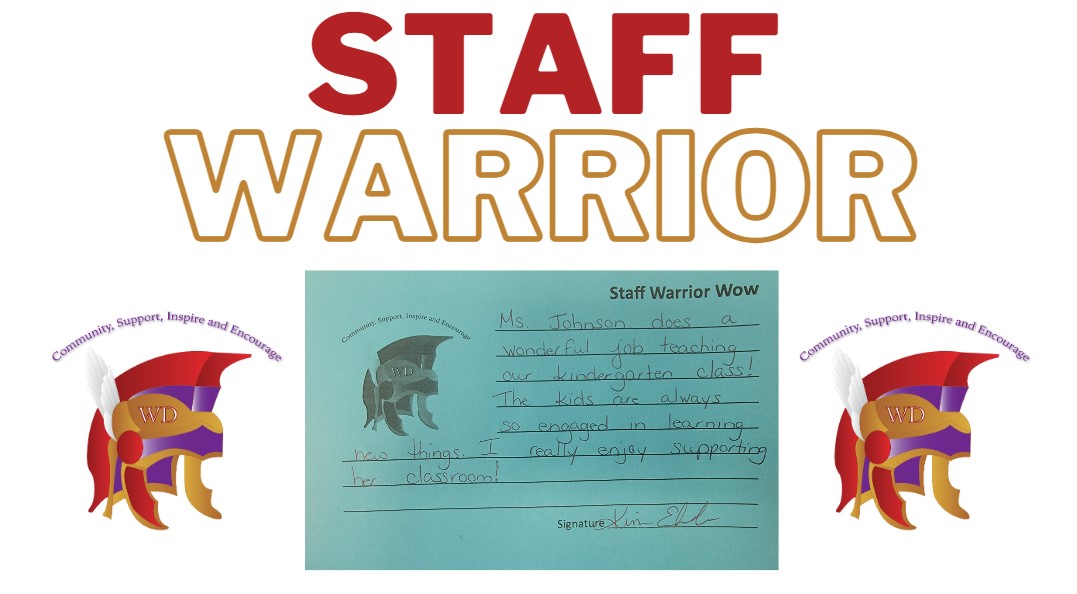 STAFF
WARRIOR
Community, Support, Inspire and Encourage
WD
Staff Warrior Wow
Community, Support, Inspire and Encourage
WD
Ms. Johnson does a
wonderful job teaching
our kindergarten class!
The kids are always
so engaged in learning
new things. I really enjoy supporting
her classroom!
Signature
Community, Support, Inspire and Encourage
WD